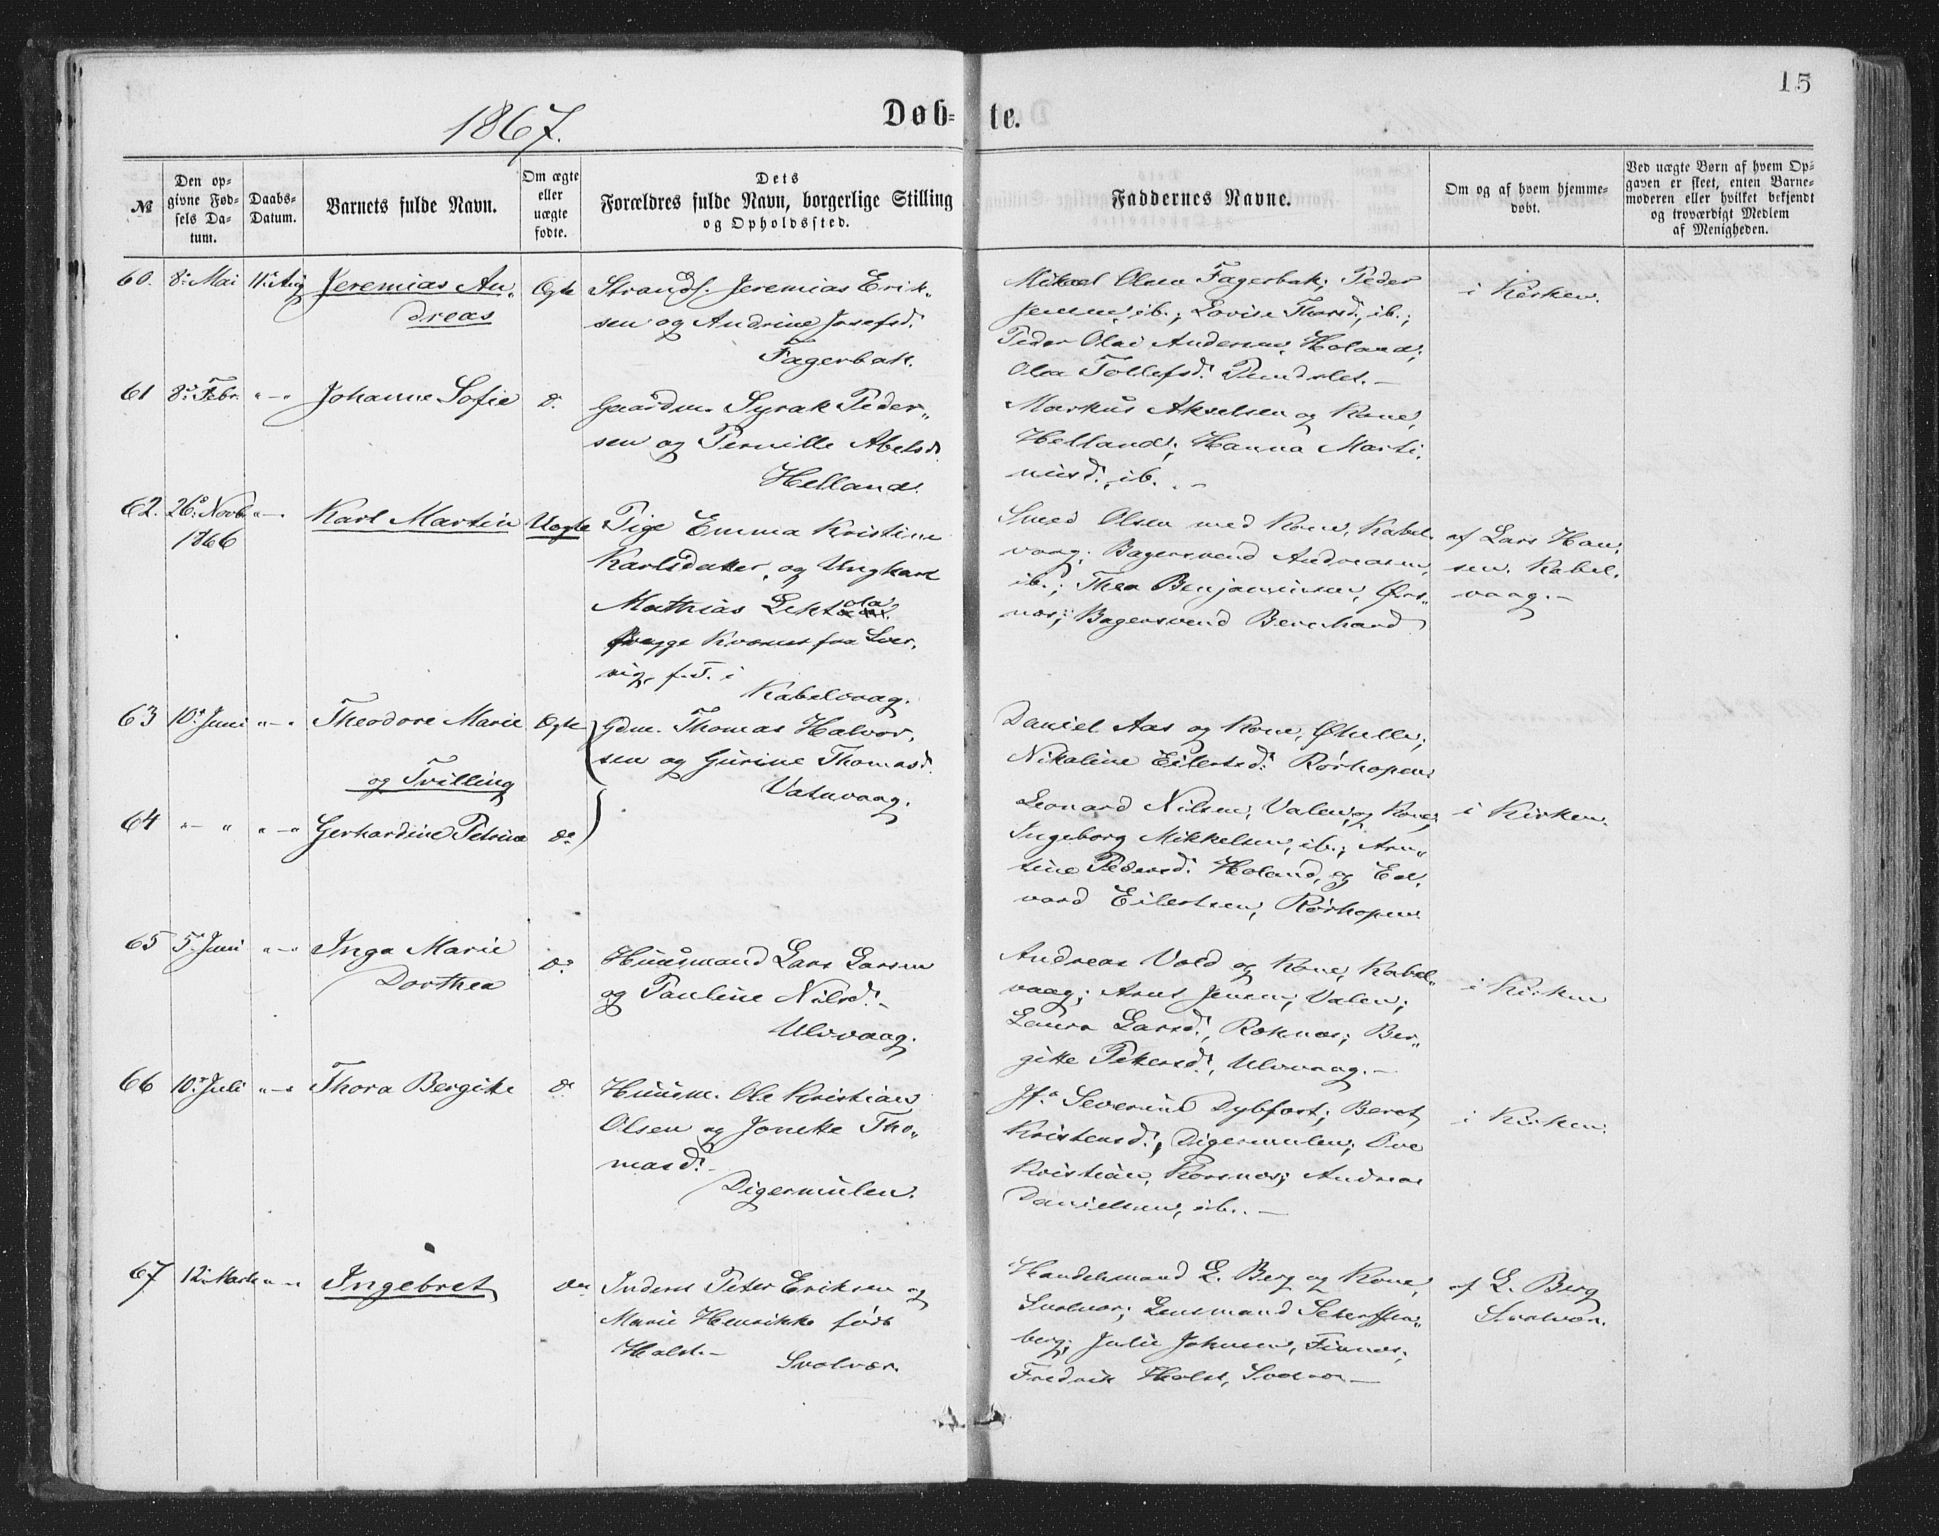 15
1867.
Døb- te.
№
Den op-
givne Fød-
sels Da-
tum.
Daabs-
Datum.
Barnets fulde Navn.
Om ægte
eller
uægte
fødte.
Dets
Forældres fulde Navn, borgerlige Stilling
og Opholdssted.
Faddernes Navne.
Om og af hvem hjemme-
døbt.
Ved uægte Børn af hvem Op-
gaven er skeet, enten Barne-
moderen eller hvilket bekjendt
og troværdigt Medlem
af Menigheden.
60. 8. Mai 11. Aug Jeremias An-
dreas
Ægte
Strands. Jeremias Erik-
sen og Andrine Josefsd.
Fagerbak.
Mikael Olsen Fagerbak; Peder
Jensen, ib.; Lovise Thorsd., ib.;
Peder Olai Andersen, Holand;
Olea Tollefsd.
i Kirken.
61 8. Febr. " — " Johanne Sofie d.
Gaardm. Syrak Peder-
sen og Pernille Abelsd.
Helland.
Markus Akselsen og Kone,
Helland; Hanna Marti-
nusd., ib. —
62. 26. Novb. " — "
1866
Karl Martin Uægte
Pige Emma Kristine
Karlsdatter, og Ungkarl
Mathias
fra
f. T. i
Kabelvaag.
Smed Olsen med Kone, Kabel-
vaag; Bagersvend Andreasen,
ib.; Thea Benjaminsen, Ørs-
næs; Bagersvend Bernhard
af Lars Han-
sen, Kabel-
vaag. —
63 10. Juni " — " Theodore Marie Ægte
og Tvilling
Gdm. Thomas Halvor-
sen og Gurine Thomasd.
Vatnvaag.
Daniel Aas og Kone, Øhelle;
Nikoline Eilertsd. Rørhopen
64 " — " " — " Gerhardine Petrine do
Leonard Nilsen, Valen, og Kone;
Ingeborg Mikkelsen, ib.; Arn-
tine Pedersd. Holand, og Ed-
vard Eilertsen, Rørhopen
i Kirken.
65 5. Juni " — " Inga Marie
Dorthea
do
Huusmand Lars Larsen
og Pauline Nilsd. —
Ulvvaag.
Andreas Vold og Kone, Kabel-
vaag; Arnt Jensen, Valen;
Laura Larsd., Roknæs; Ber-
gitte Petersd., Ulvvaag. —
i Kirken
66 10. Juli " — " Thora Bergitte do
Huusm. Ole Kristian
Olsen og Jonette Tho-
masd. —
Digermulen.
Jfr. Severine Dybfort; Beret
Kristensd., Digermulen; Ove
Kristian, Korsnæs; Andreas
Danielsen, ib. —
i Kirken.
67 12. Marts " — " Ingebret do
Inderst Peter Eriksen og
Marie Henrikke født
Holst. —
Svolvær.
Handelsmand L. Berg og Kone,
Svolvær; Lensmand Scharffen-
berg; Julie Johnsen, Finnæs;
Fredrik Holst, Svolvær —
af L. Berg
Svolvær.